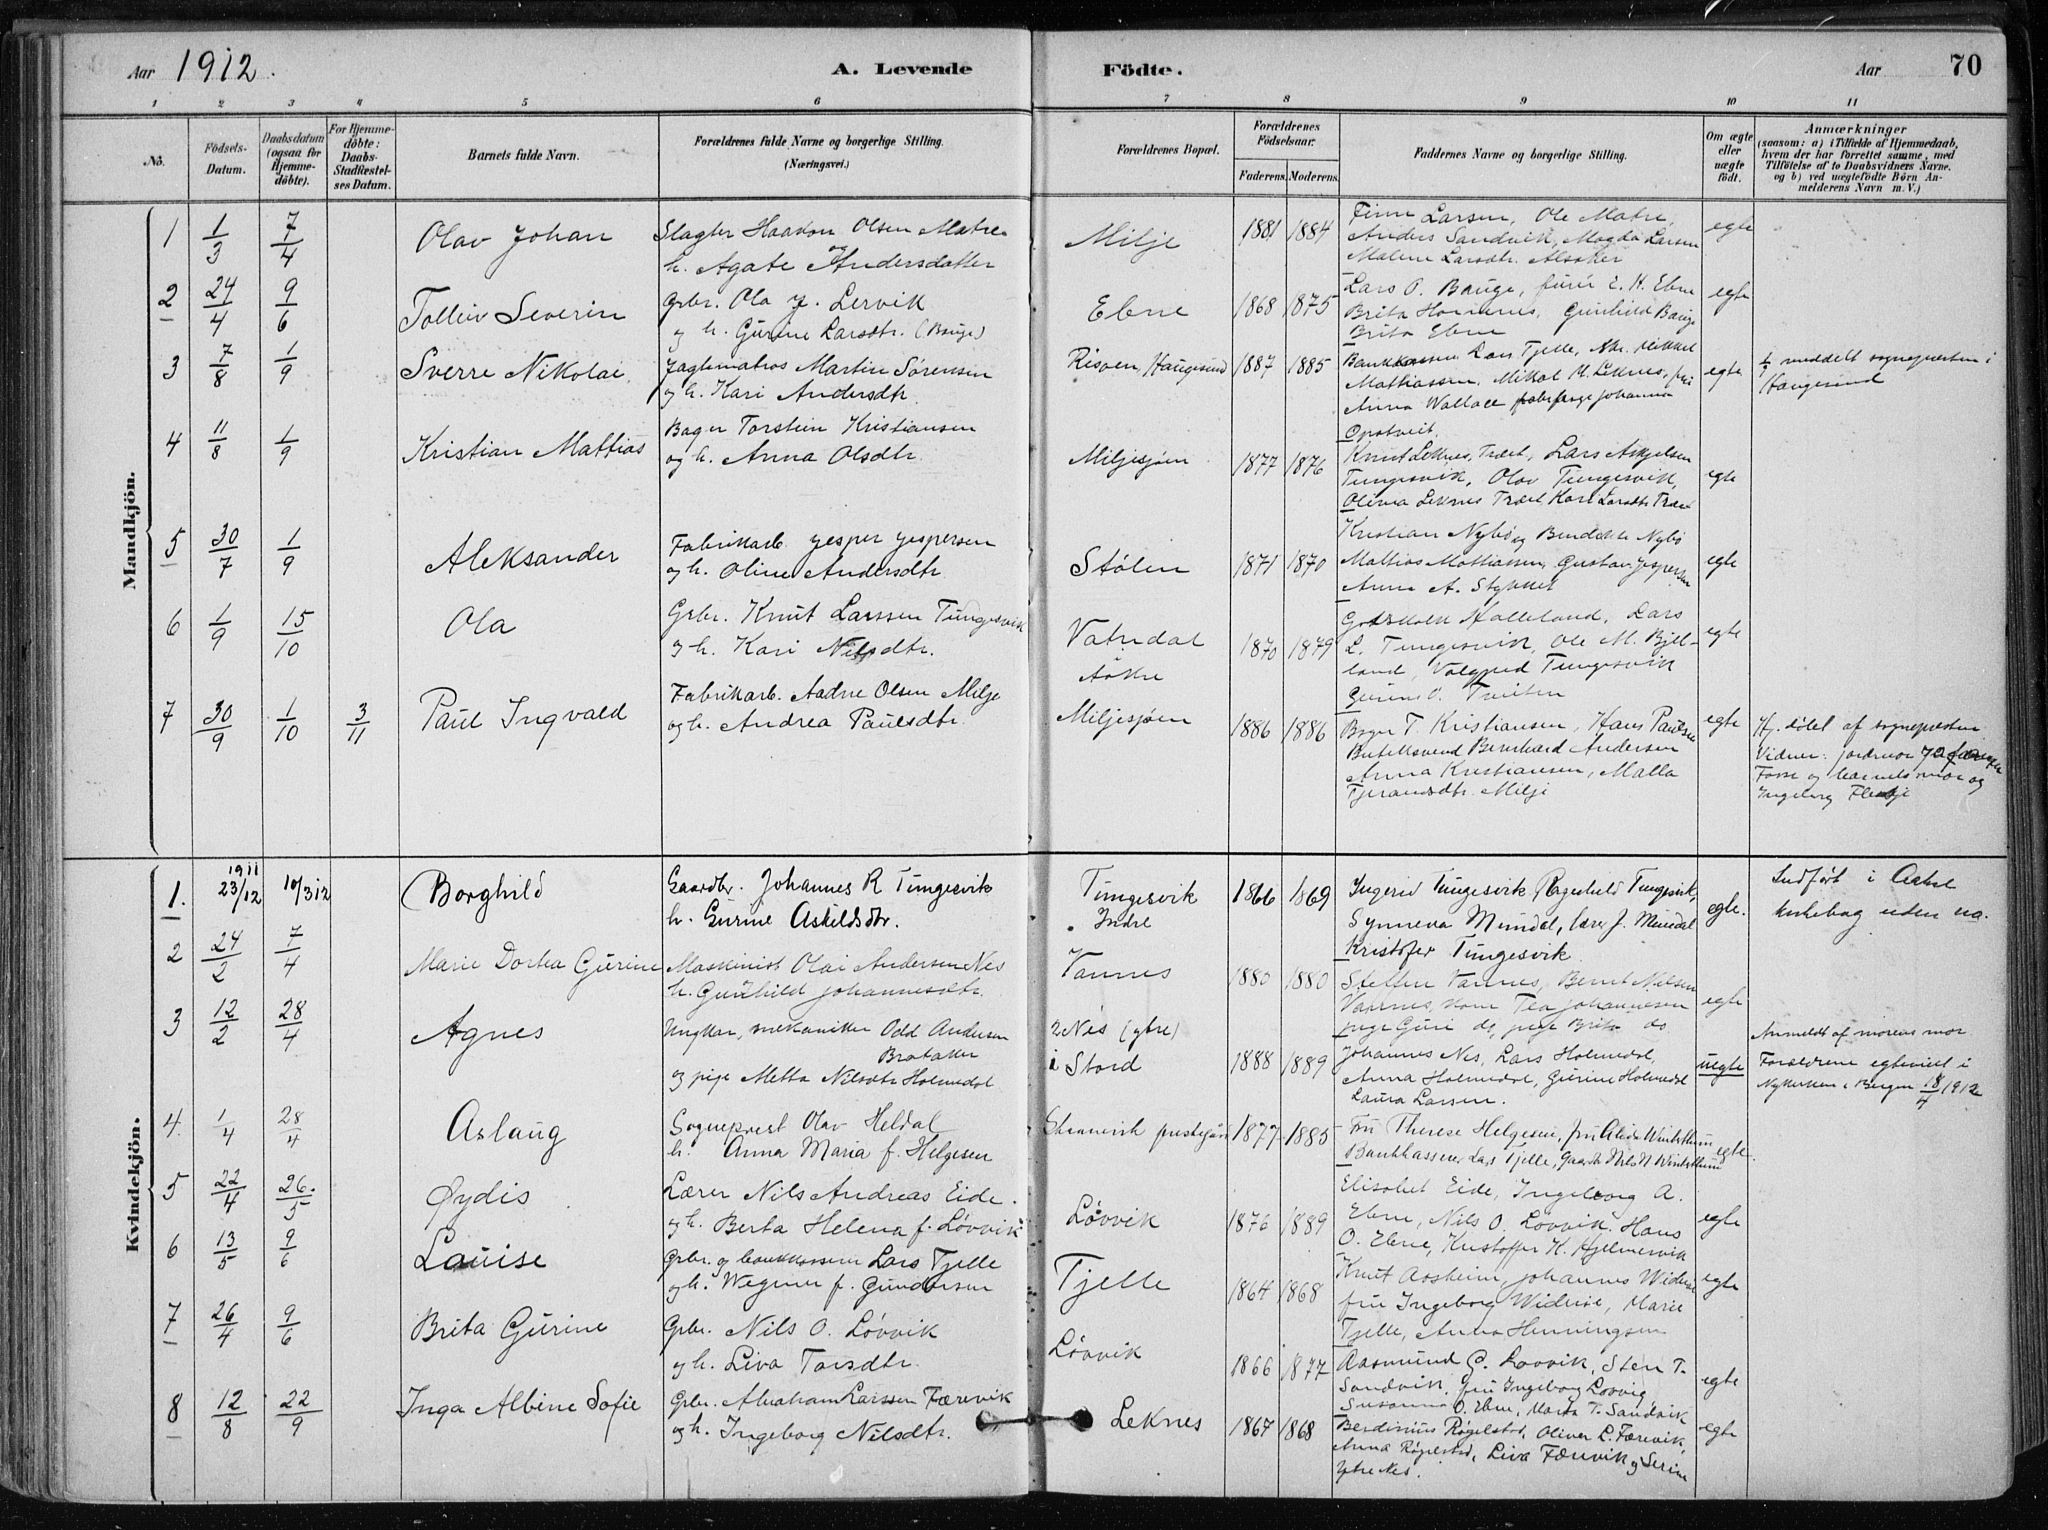 Aar 1912. A. Levende Födte. Aar 70
1 2 3 4 5 6 7 8 9 10 11
No. Födsels-Datum. Daabsdatum (ogsaa for Hjemmedöbte). For Hjemmedöbte: Daabs-Stadfæstelses Datum. Barnets fulde Navn. Forældrenes fulde Navne og borgerlige Stilling. (Næringsvei.) Forældrenes Bopæl. Forældrenes Födselsaar. Faderens. Moderens. Faddernes Navne og borgerlige Stilling. Om ægte eller uægte födt. Anmærkninger (saasom: a) i Tilfælde af Hjemmedaab, hvem der har forrettet samme, med Tilföielse af to Daabsvidners Navne. og b) ved uægtefödte Börn Anmelderens Navn m. V.)
Mandkjön.
1 1/3 7/4 Olav Johan Slagter Haakon Olsen Matre og h. Agate Andersdatter Milje 1881 1884 Finn Larsen, Ole Matre, Anders Sandvik, Magda Larsen Malene Larsdtr. Alsaker egte
2 24/4 9/6 Tolleiv Severin Grbr. Ola J. Lervik og h. Gurine Larsdtr. (Bauge) Ebne 1868 1875 Lars O. Bauge, furér E. H. Ebne Brita Gunhild Bauge Brita Ebne egte
3 7/8 1/9 Sverre Nikolai Jagtematros Martin Sørensen og h. Kari Andersdtr. Risøen, Haugesund 1887 1885 Bankkasserer Lars Tjelle, Mikkel Mathiassen, Mikal M. Leknes, fru Anna Wallace Johanna Opstveit. egte meddelt sognepresten i Haugesund
4 11/8 1/9 Kristian Mattias Bager Torstein Kristiansen og h. Anna Olsdtr. Miljesjøen 1877 1876 Knut Leknes, Træet, Lars Askjelsen Tungesvik, Olav Tungesvik, Olivia Leknes Træet Kari Larsdtr. egte
5 30/7 1/9 Aleksander Fabrikarb. Jesper Jespersen og h. Oline Andersdtr. Stølen 1871 1870 Kristian Nybø og Nybø Mattias Mathiassen, Gustav Jespersen Anna A. Stykket egte
6 1/9 15/10 Ola Grbr. Knut Larssen Tungesvik og h. Kari Nilsdtr. Vatndal Aakre 1870 1879 Godskalk Halleland, Lars L. Tungesvik, Ole M. Bjelland, Valgjerd Tungesvik Gurine O. egte
7 30/9 1/10 3/11 Paul Ingvald Fabrikarb. Aadne Olsen Milje og h. Andrea Paulsdtr. Miljesjøen 1886 1886 Bager T. Kristiansen, Hans Paulsen Butiksvend Bernhard Andersen Anna Kristiansen, Malla Tjerandsdtr. Milje egte Hj. døbt af sognepresten. Vidner: jordmor Fosse og barnets mor og Ingeborg
Kvindekjön.
1. 1911 23/12 10/3 12 Borghild Gaardbr. Johannes R Tungesvik h. Gurine Askildsdtr. Tungesvik Indre 1866 1869 Ingerid Tungesvik Ragnhild Tungesvik, Synneva Mundal, lærer J. Mundal Kristofer Tungesvik. egte. Indført i Aakre kirkebog uden no.
2 24/2 7/4 Marie Dortea Gurine Maskinist Olai Andersen Nes h. Gunhild Johannesdtr. Vannes 1880 1880 Steffen Vannes, Bernt Nilsen Vannes, kone Tea Johannesen pige Guri do, pige Brita do egte
3 12/2 28/4 Agnes Ungkar, mekaniker Odd Andersen Brataker og pige Metta Nilsdtr Holmedal 2 Nes (ytre) i Stord 1888 1889 Johannes Nes, Lars Holmedal, Anna Holmedal, Gurine Holmedal Laura Larsen. uegte Anmeldt af morens mor Forældrene egteviet i Nykirken i Bergen 18/4 1912
4. 1/4 28/4 Aslaug Sogneprest Olav Heldal h. Anna Maria f. Helgesen Skaanevik prestegård 1877 1885 Fru Therese Helgesen, fru Alida Winterthun Bankkasserer Lars Tjelle, Gaardbr Nils N Winterthun egte
5 22/4 26/5 Øydis Lærer Nils Andreas Eide. og h. Berta Helena f. Løvvik Løvvik 1876 1889 Elisabet Eide, Ingeborg A. Ebne, Nils O. Løvvik, Hans O. Ebne, Kristoffer K. Hjelmervik egte
6 13/5 9/6 Lauise Grbr. og bankkasserer Lars Tjelle og h. Wegener f. Gundersen Tjelle 1864 1868 Knut Aasheim, Johannes Widerøe fru Ingeborg Widerøe, Marie Tjelle, Anna Henningsen egte
7 26/4 9/6 Brita Gurine Grbr. Nils O. Løvvik og h. Liva Torsdtr. Løvvik 1866 1877 Aasmund G. Løvvik, Sten T. Sandvik, fru Ingeborg Løvvig Susanna O. Ebne, Marta T. Sandvik egte
8 12/8 22/9 Inga Albine Sofie Grbr. Abraham Larssen Færevik og h. Ingeborg Nilsdtr. Leknes 1867 1868 Berdinius Røgelstad, Oliver L. Færevik, Anna Røgelstad, Liva Færevik og Serine Ytre Nes. egte